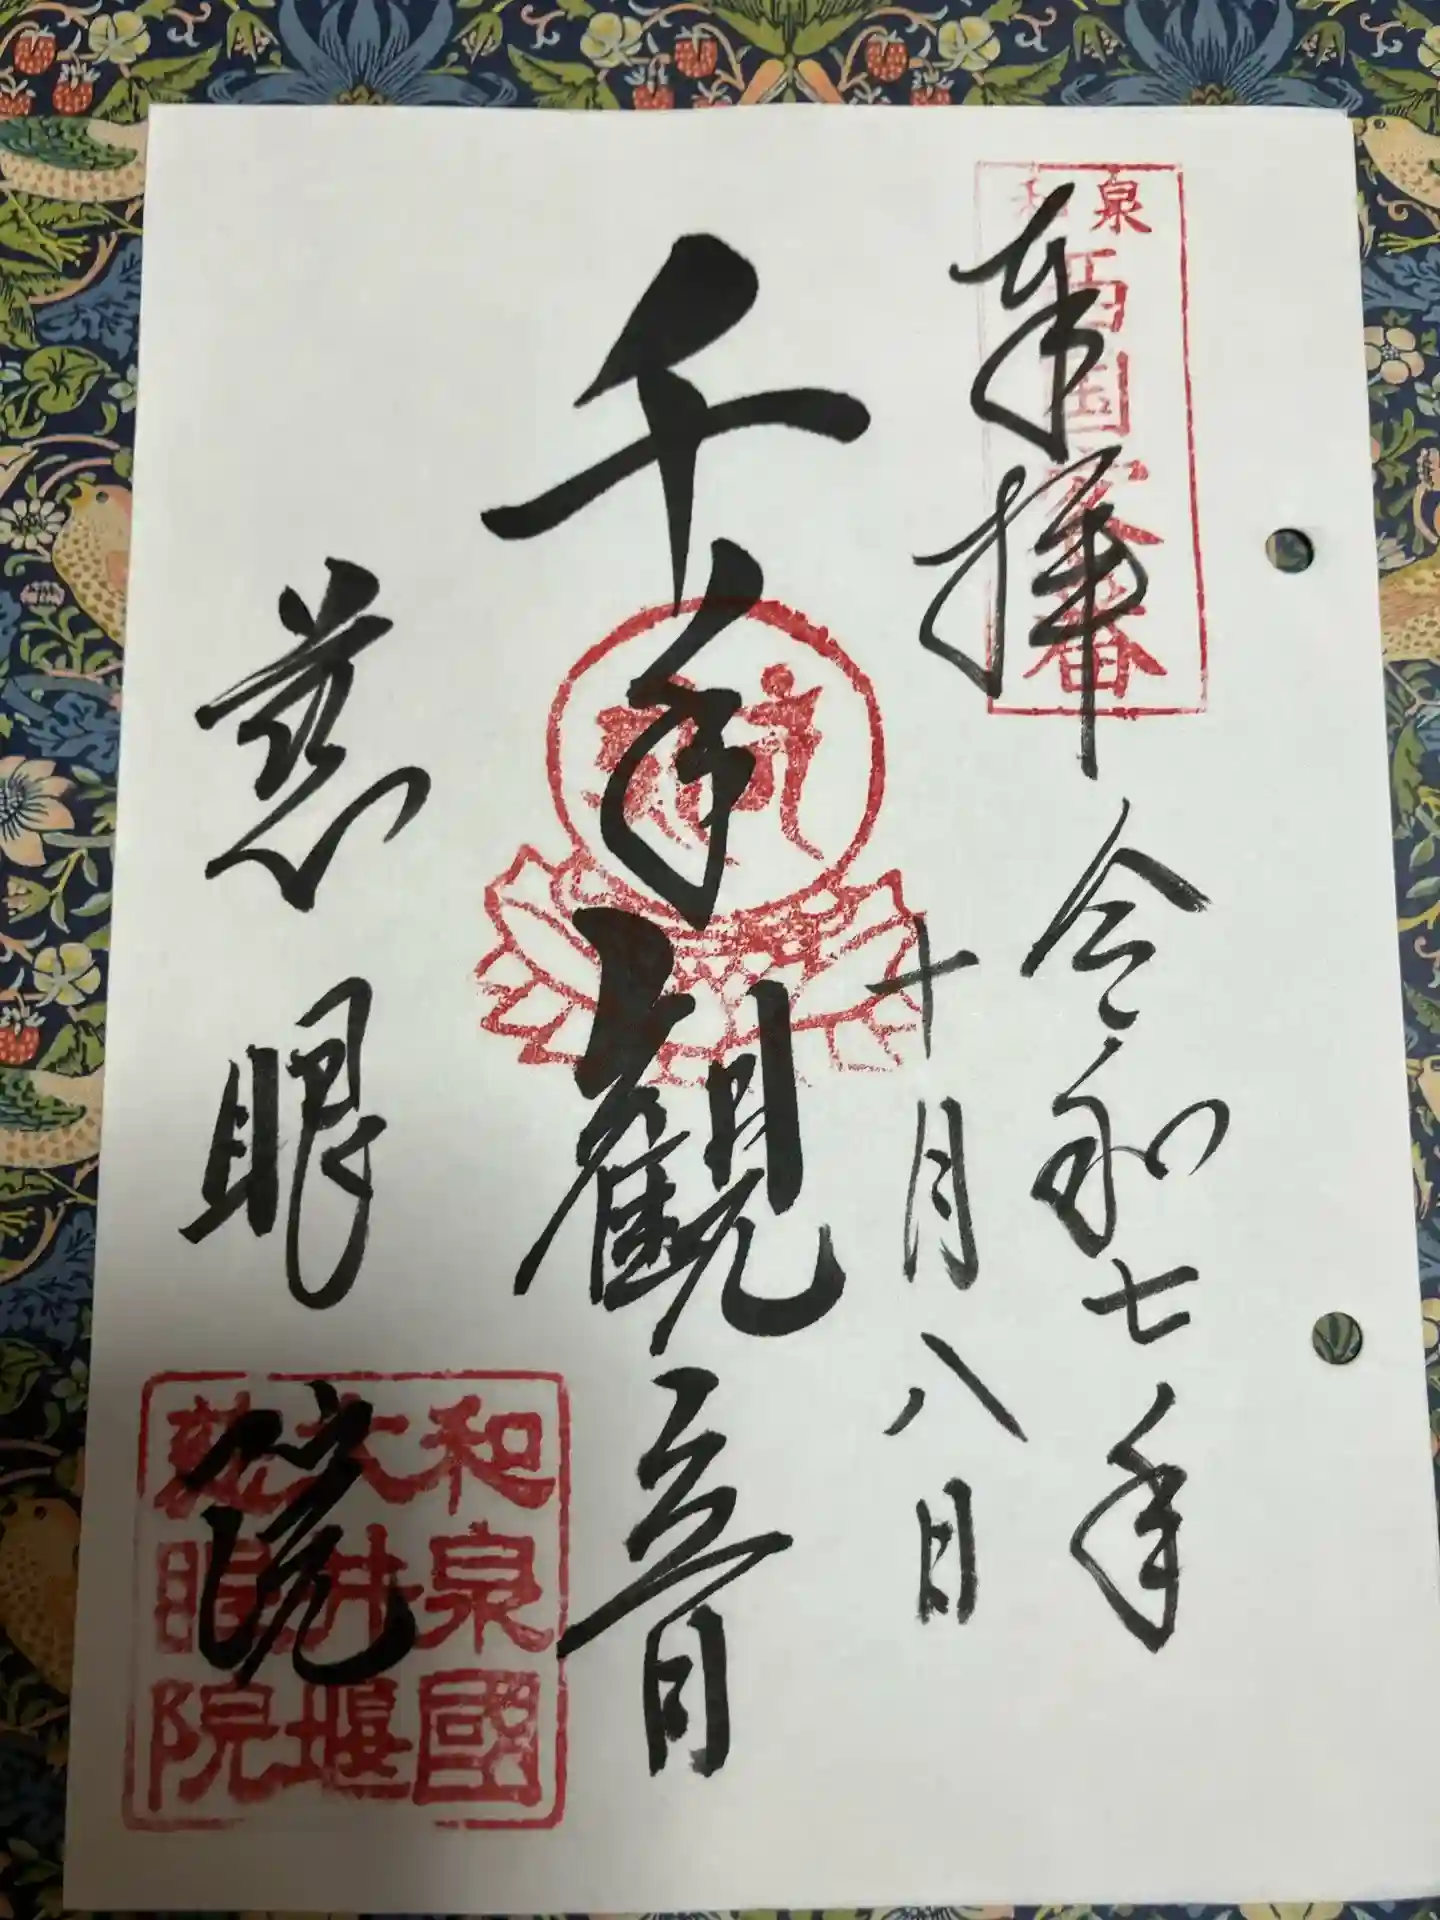 奉拝
和泉
西国
番
令和七年
十月八日
千手観音
慈眼院
和泉國
大井堰
慈眼院